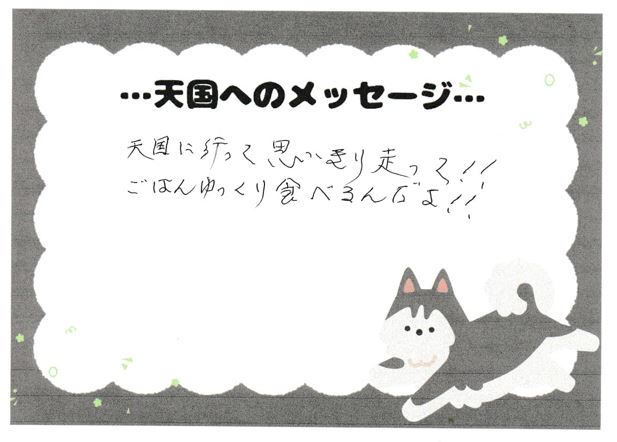 …天国へのメッセージ…
天国に行って思いきり走って!!
ごはんゆっくり食べるんだよ!!